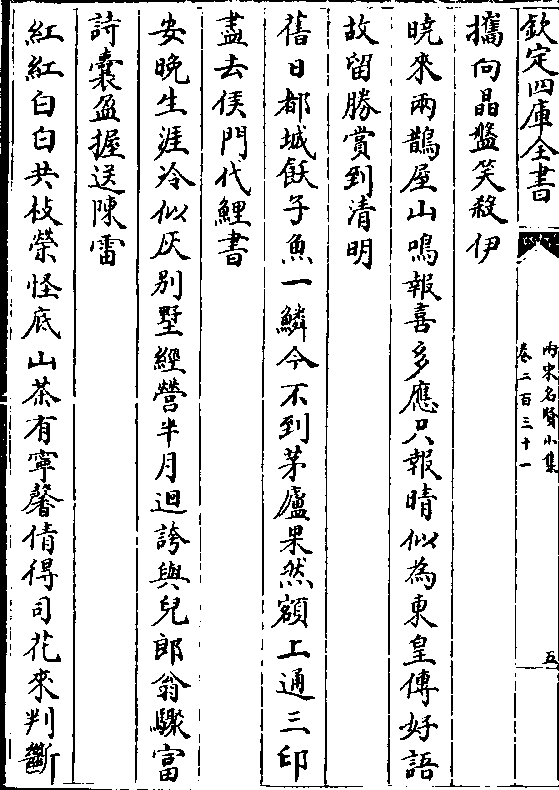 欽定四庫全書
兩宋名賢小集
卷二百三十一
五
攜向晶盤笑殺伊
曉來兩鵲屋山鳴報喜多應只報晴似為東皇傳好語
故留勝賞到清明
舊日都城飫子魚一鱗今不到茅廬果然額上通三印
盡去侯門代鯉書
安晚生涯冷似灰別墅經營半月迴誇與兒郎翁驟富
詩囊盈握送陳雷
紅紅白白共枝榮怪底山茶有寧馨倩得司花來判斷